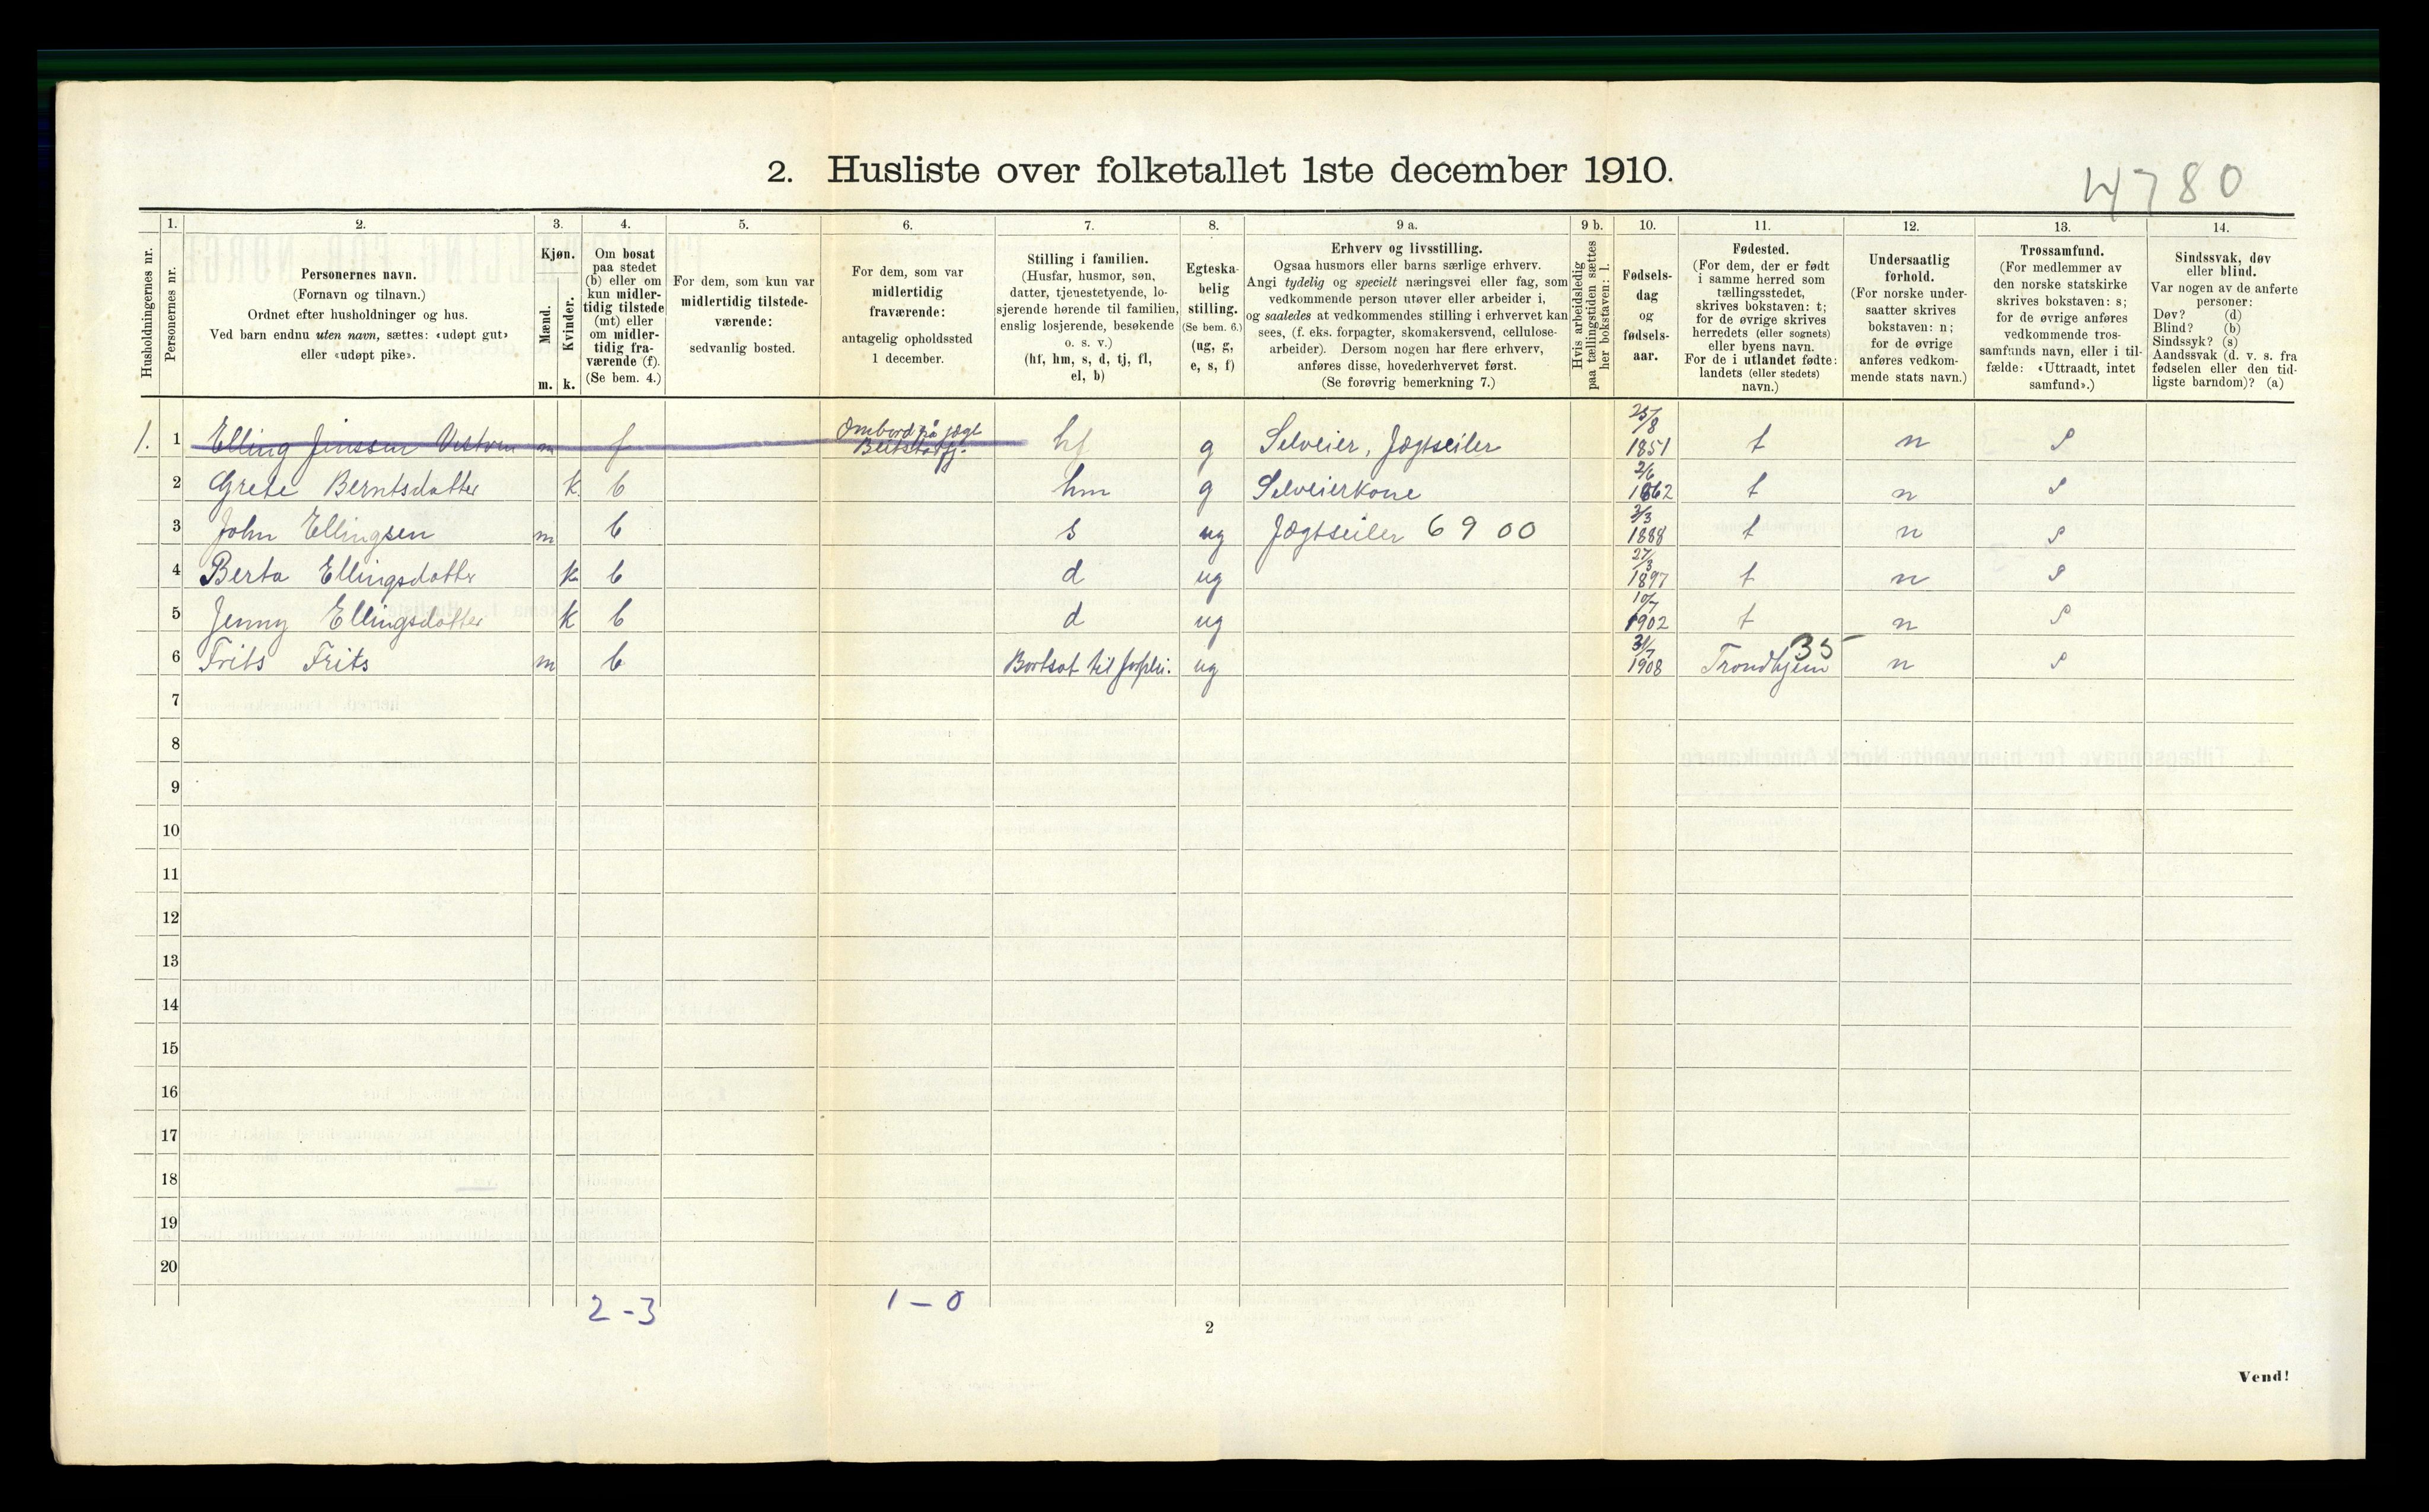 2. Husliste over folketallet 1ste december 1910.
4780
Husholdningernes nr.
1.
Personernes nr.
2.
Personernes navn.
(Fornavn og tilnavn.)
Ordnet efter husholdninger og hus.
Ved barn endnu uten navn, sættes: «udøpt gut»
eller «udøpt pike».
3.
Kjøn.
Mænd.
m.
Kvinder.
k.
4.
Om bosat
paa stedet
(b) eller om
kun midler-
tidig tilstede
(mt) eller
om midler-
tidig fra-
værende (f).
(Se bem. 4.)
5.
For dem, som kun var
midlertidig tilstede-
værende:
sedvanlig bosted.
6.
For dem, som var
midlertidig
fraværende:
antagelig opholdssted
1 december.
7.
Stilling i familien.
(Husfar, husmor, søn,
datter, tjenestetyende, lo-
sjerende hørende til familien,
enslig losjerende, besøkende
o. s. v.)
(hf, hm, s, d, tj, fl,
el, b)
8.
Egteska-
belig
stilling.
(Se bem. 6.)
(ug, g,
e, s, f)
9 a.
Erhverv og livsstilling.
Ogsaa husmors eller barns særlige erhverv.
Angi tydelig og specielt næringsvei eller fag, som
vedkommende person utøver eller arbeider i,
og saaledes at vedkommendes stilling i erhvervet kan
sees, (f. eks. forpagter, skomakersvend, cellulose-
arbeider). Dersom nogen har flere erhverv,
anføres disse, hovederhvervet først.
(Se forøvrig bemerkning 7.)
9 b.
Hvis arbeidsledig
paa tællingstiden sættes
her bokstaven: l.
10.
Fødsels-
dag
og
fødsels-
aar.
11.
Fødested.
(For dem, der er født
i samme herred som
tællingsstedet,
skrives bokstaven: t;
for de øvrige skrives
herredets (eller sognets)
eller byens navn.
For de i utlandet fødte:
landets (eller stedets)
navn.)
12.
Undersaatlig
forhold.
(For norske under-
saatter skrives
bokstaven: n;
for de øvrige
anføres vedkom-
mende stats navn.)
13.
Trossamfund.
(For medlemmer av
den norske statskirke
skrives bokstaven: s;
for de øvrige anføres
vedkommende tros-
samfunds navn, eller i til-
fælde: «Uttraadt, intet
samfund».)
14.
Sindssvak, døv
eller blind.
Var nogen av de anførte
personer:
Døv? (d)
Blind? (b)
Sindssyk? (s)
Aandssvak (d. v. s. fra
fødselen eller den tid-
ligste barndom)? (a)
1. 1 Elling Jenssen m f Ombord på jægt hf g Selveier, Jægtseiler 25/8 1851 t n s
2 Grete Berntsdatter k b hm g Selveierkone 2/6 1862 t n s
3 John Ellingsen m b s ug Jægtseiler 6900 2/3 1888 t n s
4 Berta Ellingsdatter k b d ug 27/3 1897 t n s
5 Jenny Ellingsdatter k b d ug 10/7 1902 t n s
6 Frits Frits m b Bortsat til forplei. ug 31/7 1908 Trondhjem 35 n s
7
8
9
10
11
12
13
14
15
16
17
18
19
20
2-3 1-0
2
Vend!